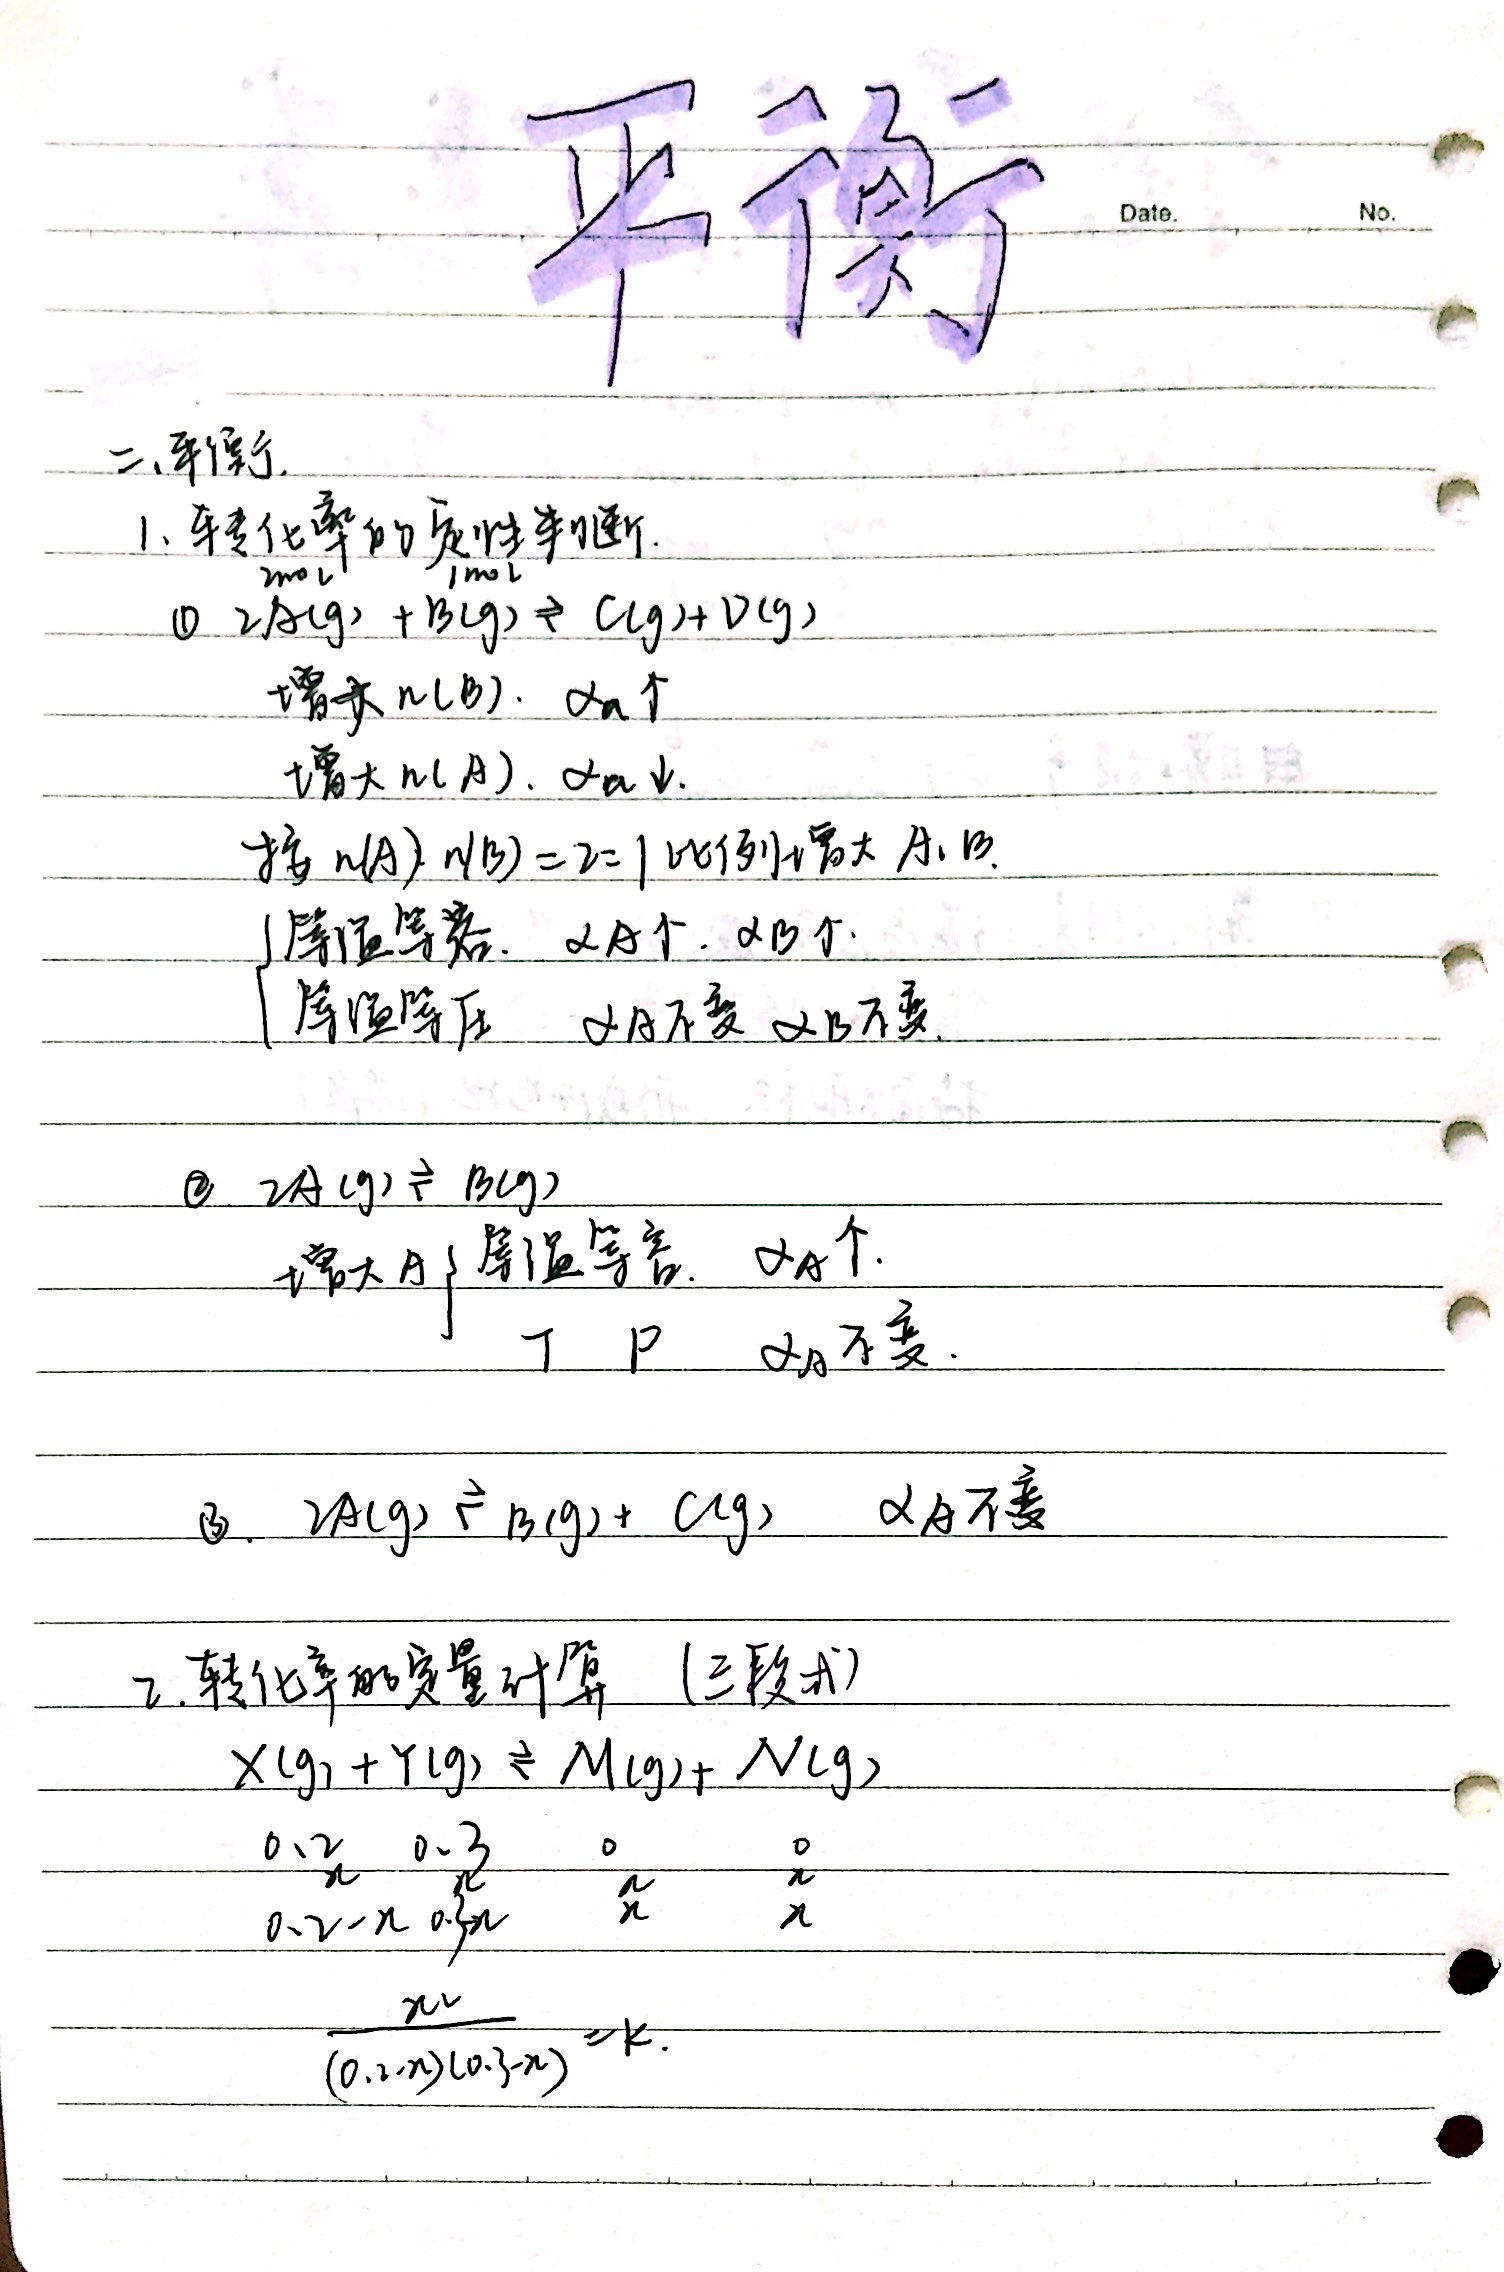 平衡
Date. No.
二、平衡.
1、转化率的定性判断.
2mol 1mol
① 2A(g) + B(g) ⇌ C(g) + D(g)
增大 n(B). αa↑
增大 n(A). αa↓.
按 n(A):n(B)=2:1 比例增大 A、B.
等温等容. αA↑. αB↑.
等温等压 αA不变 αB不变.
② 2A(g) ⇌ B(g)
增大A { 等温等容. αA↑.
T P αA不变.
③. 2A(g) ⇌ B(g) + C(g) αA不变
2.转化率的定量计算 (三段式)
X(g) + Y(g) ⇌ M(g) + N(g)
0.2 0.3 0 0
x x x x
0.2-x 0.3-x x x
x²/(0.2-x)(0.3-x) = K.